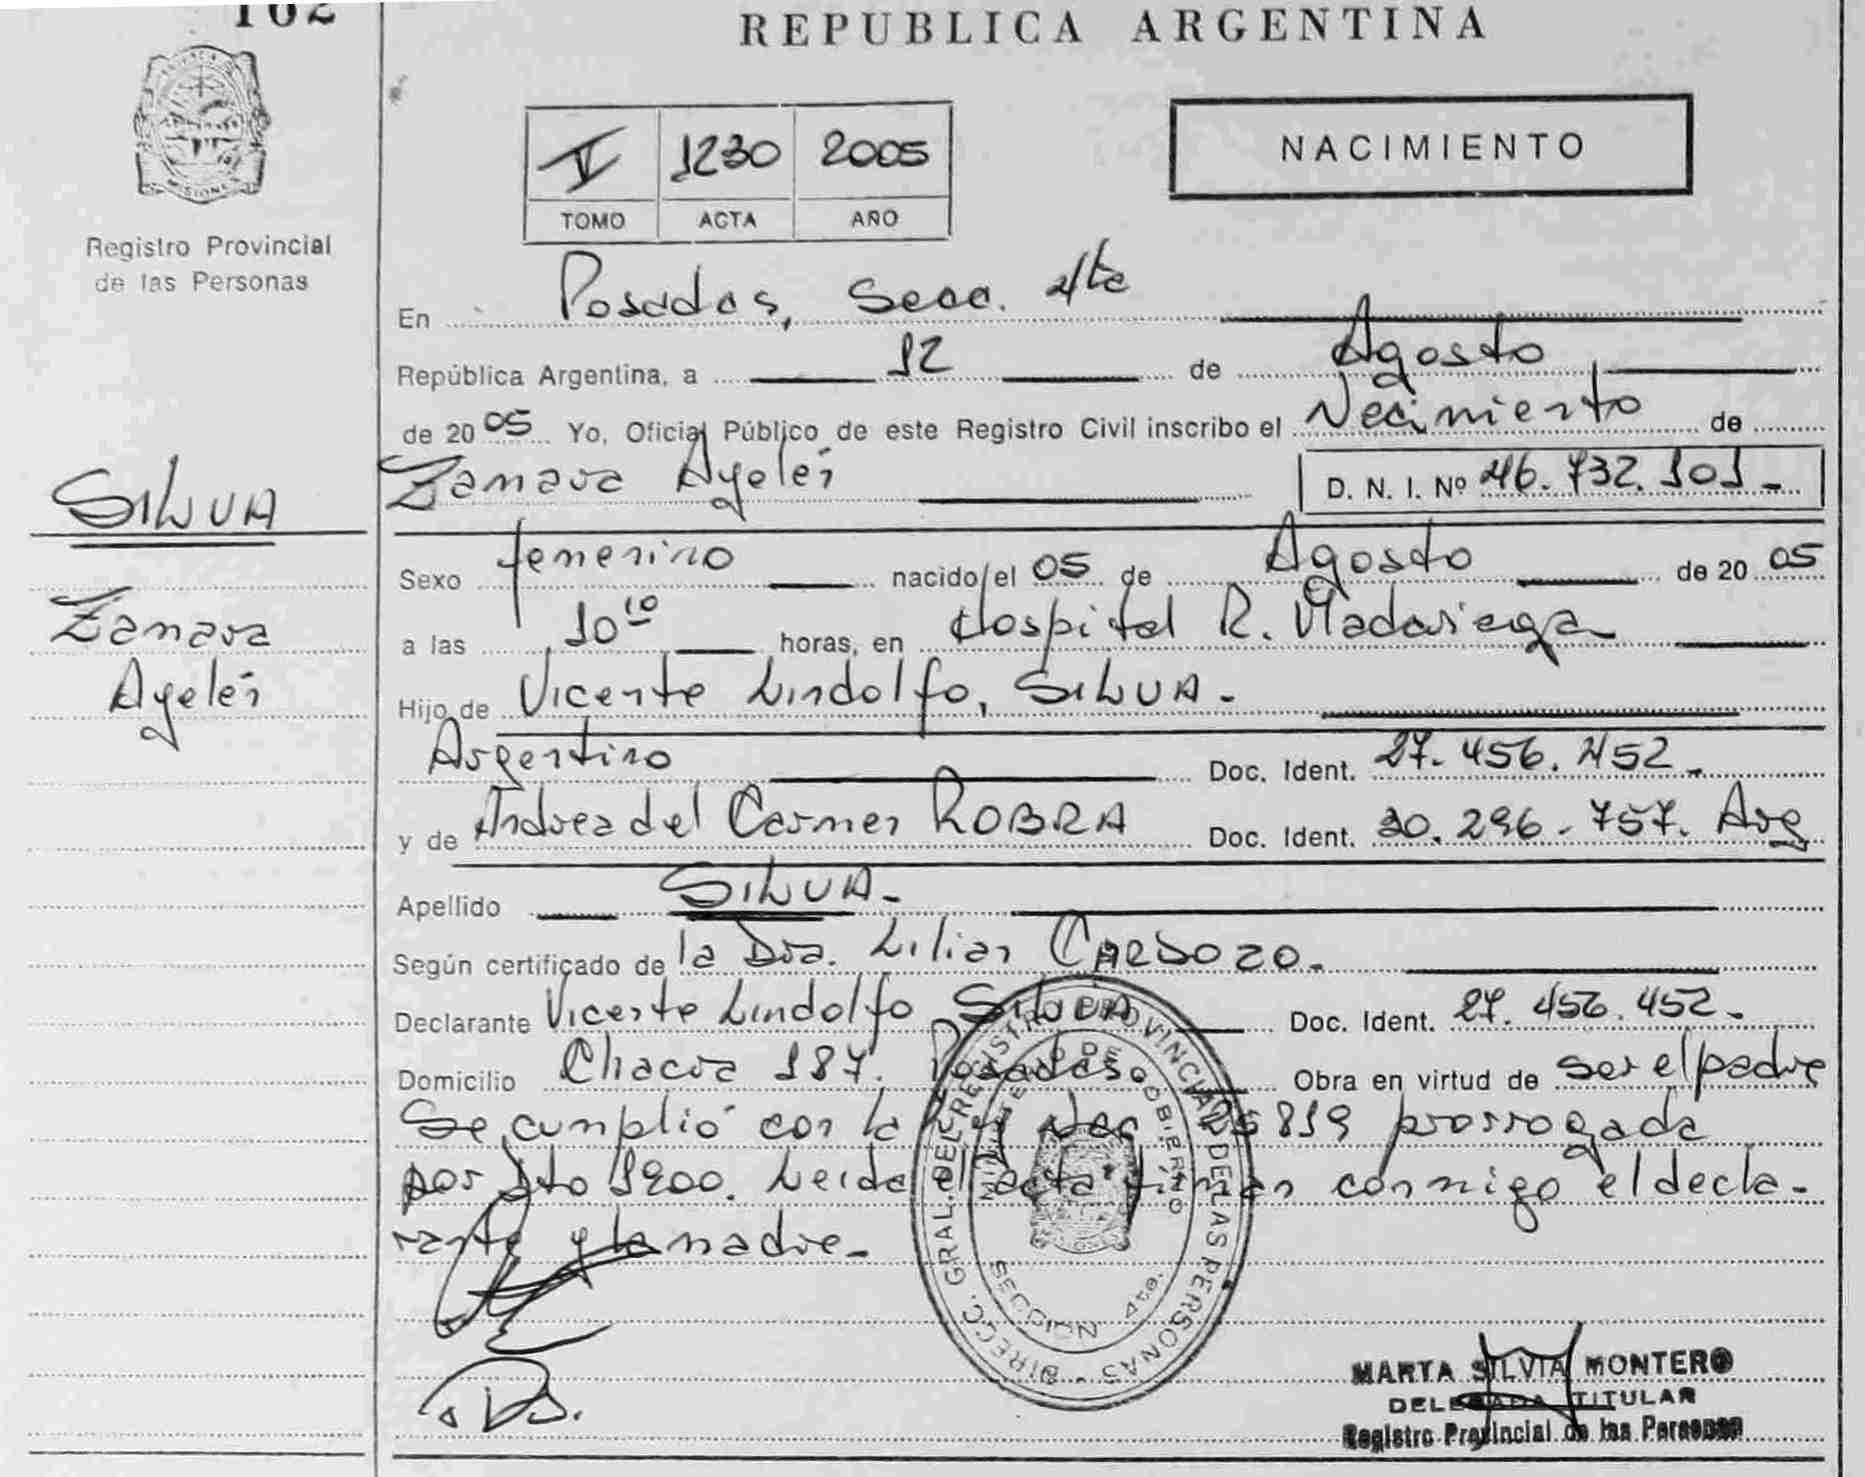 162
REPUBLICA ARGENTINA
MISIONES
Registro Provincial
de las Personas
V 1230 2005
TOMO ACTA AÑO
NACIMIENTO
En Posadas, Secc. 4ta
República Argentina, a 12 de Agosto
de 2005 Yo, Oficial Público de este Registro Civil inscribo el Nacimiento de
Zamara Ayelén D. N. I. Nº 46.732.101.-
SILVA
Zamara
Ayelén
Sexo femenino nacido el 05 de Agosto de 2005
a las 10¹⁰ horas, en Hospital R. Madariaga
Hijo de Vicente Lindolfo, SILVA.-
Argentino Doc. Ident. 27.456.452.-
y de Andrea del Carmen ROBRA Doc. Ident. 30.296.757. Arg
Apellido SILVA.-
Según certificado de la Dra. Lilian CARDOZO.-
Declarante Vicente Lindolfo SILVA Doc. Ident. 27.456.452.-
Domicilio Chacra 187. Posadas. Obra en virtud de ser el padre
Se cumplió con la Ley Nac 25819 prorrogada
por Dto 1900. Leida el acta firman conmigo el decla-
rante y la madre.-
DIRECC. GRAL. DEL REGISTRO PROVINCIAL DE LAS PERSONAS
MINISTERIO DE GOBIERNO
SECCION 4ta.
MARTA SILVIA MONTERO
DELEGADA TITULAR
Registro Provincial de las Personas